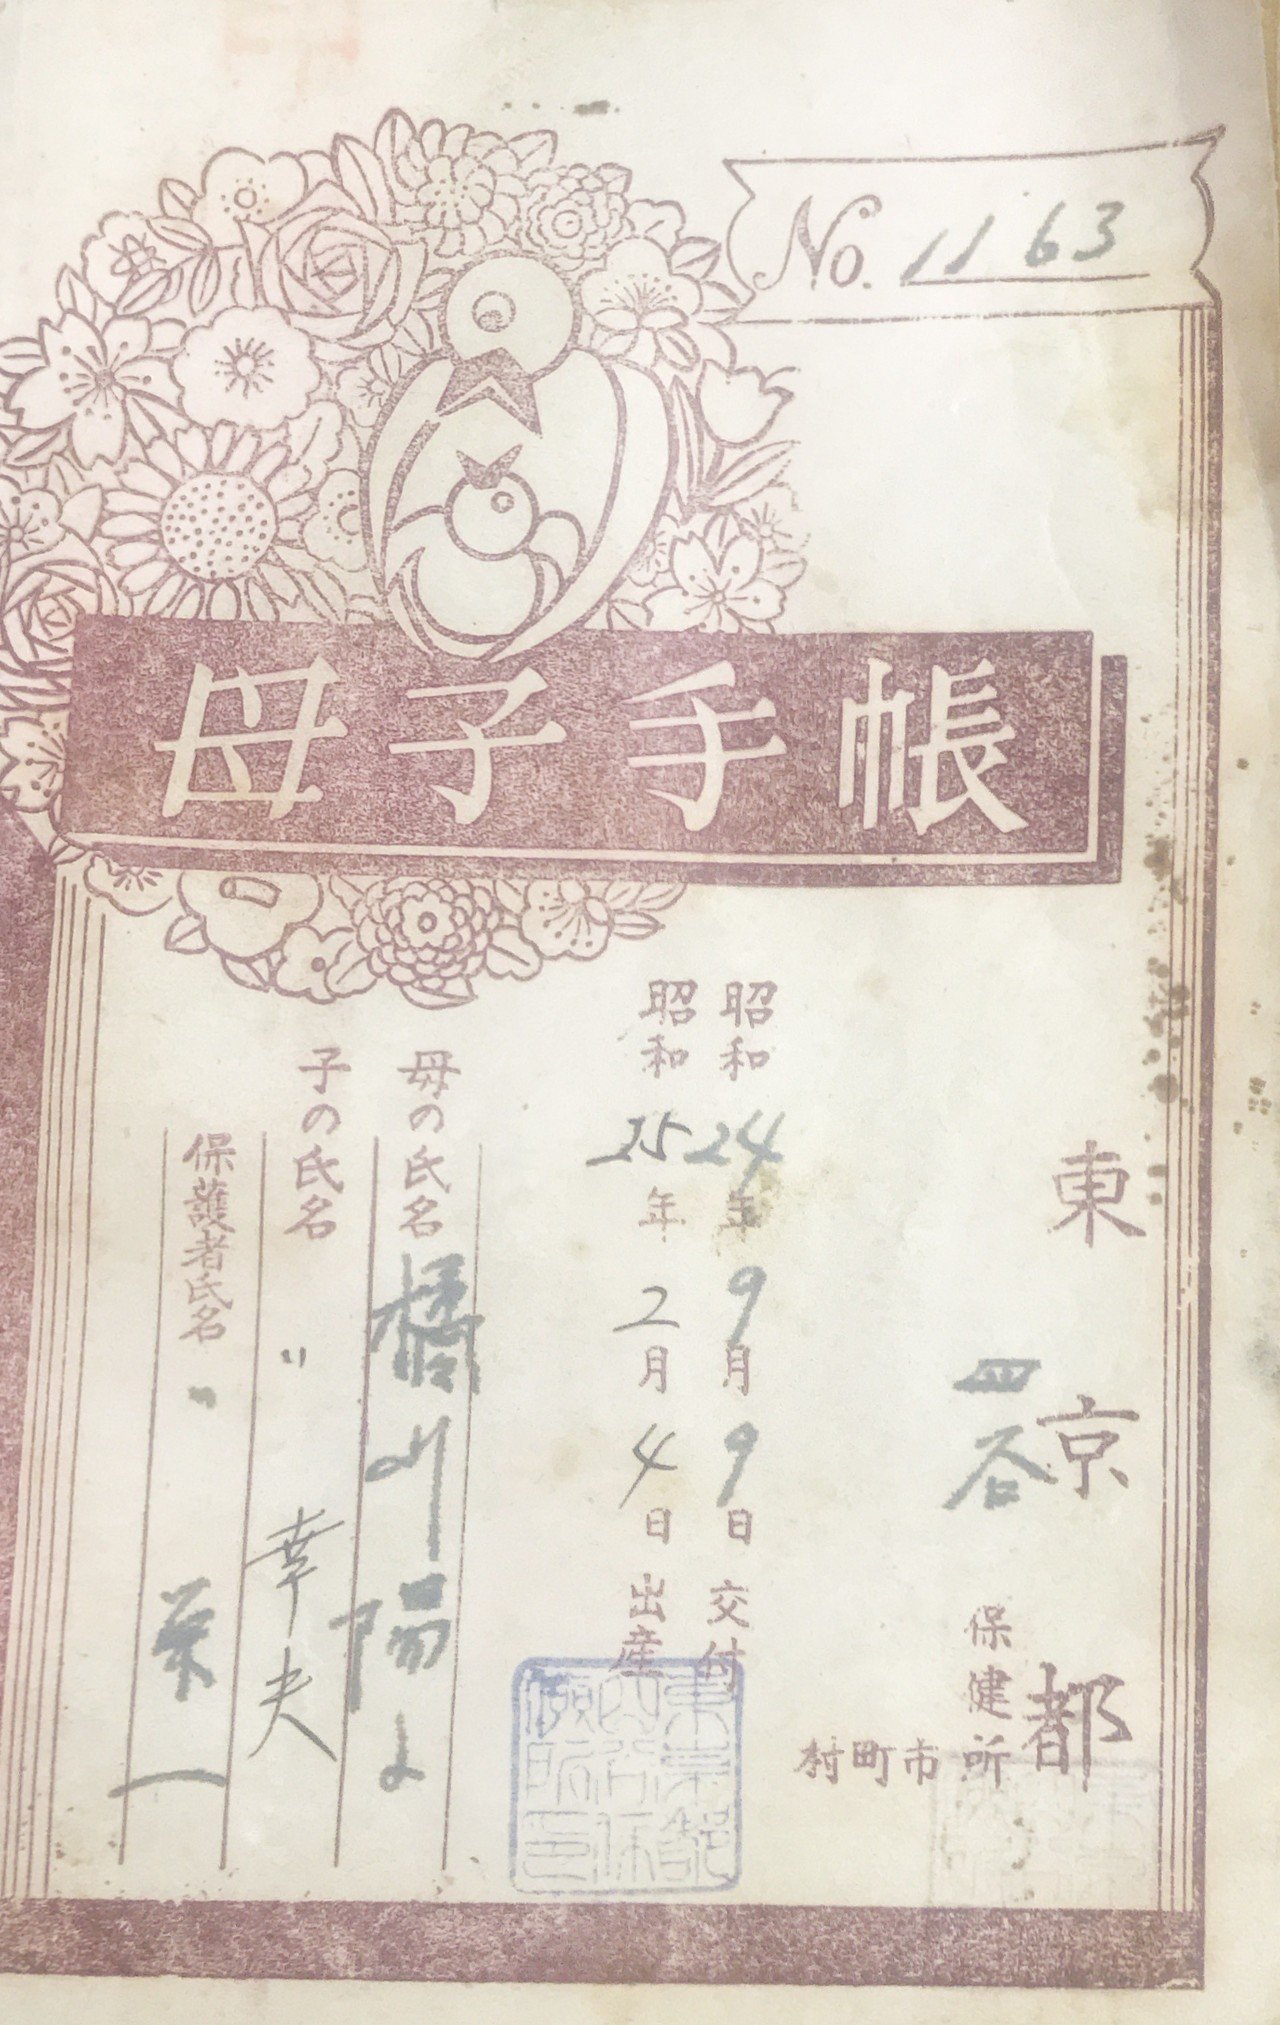 No. 1163
母子手帳
東京都
四谷保健所
市町村
昭和24年9月9日交付
昭和25年2月4日出産
母の氏名 橋川陽よ
子の氏名 〃 幸夫
保護者氏名 〃 栄一